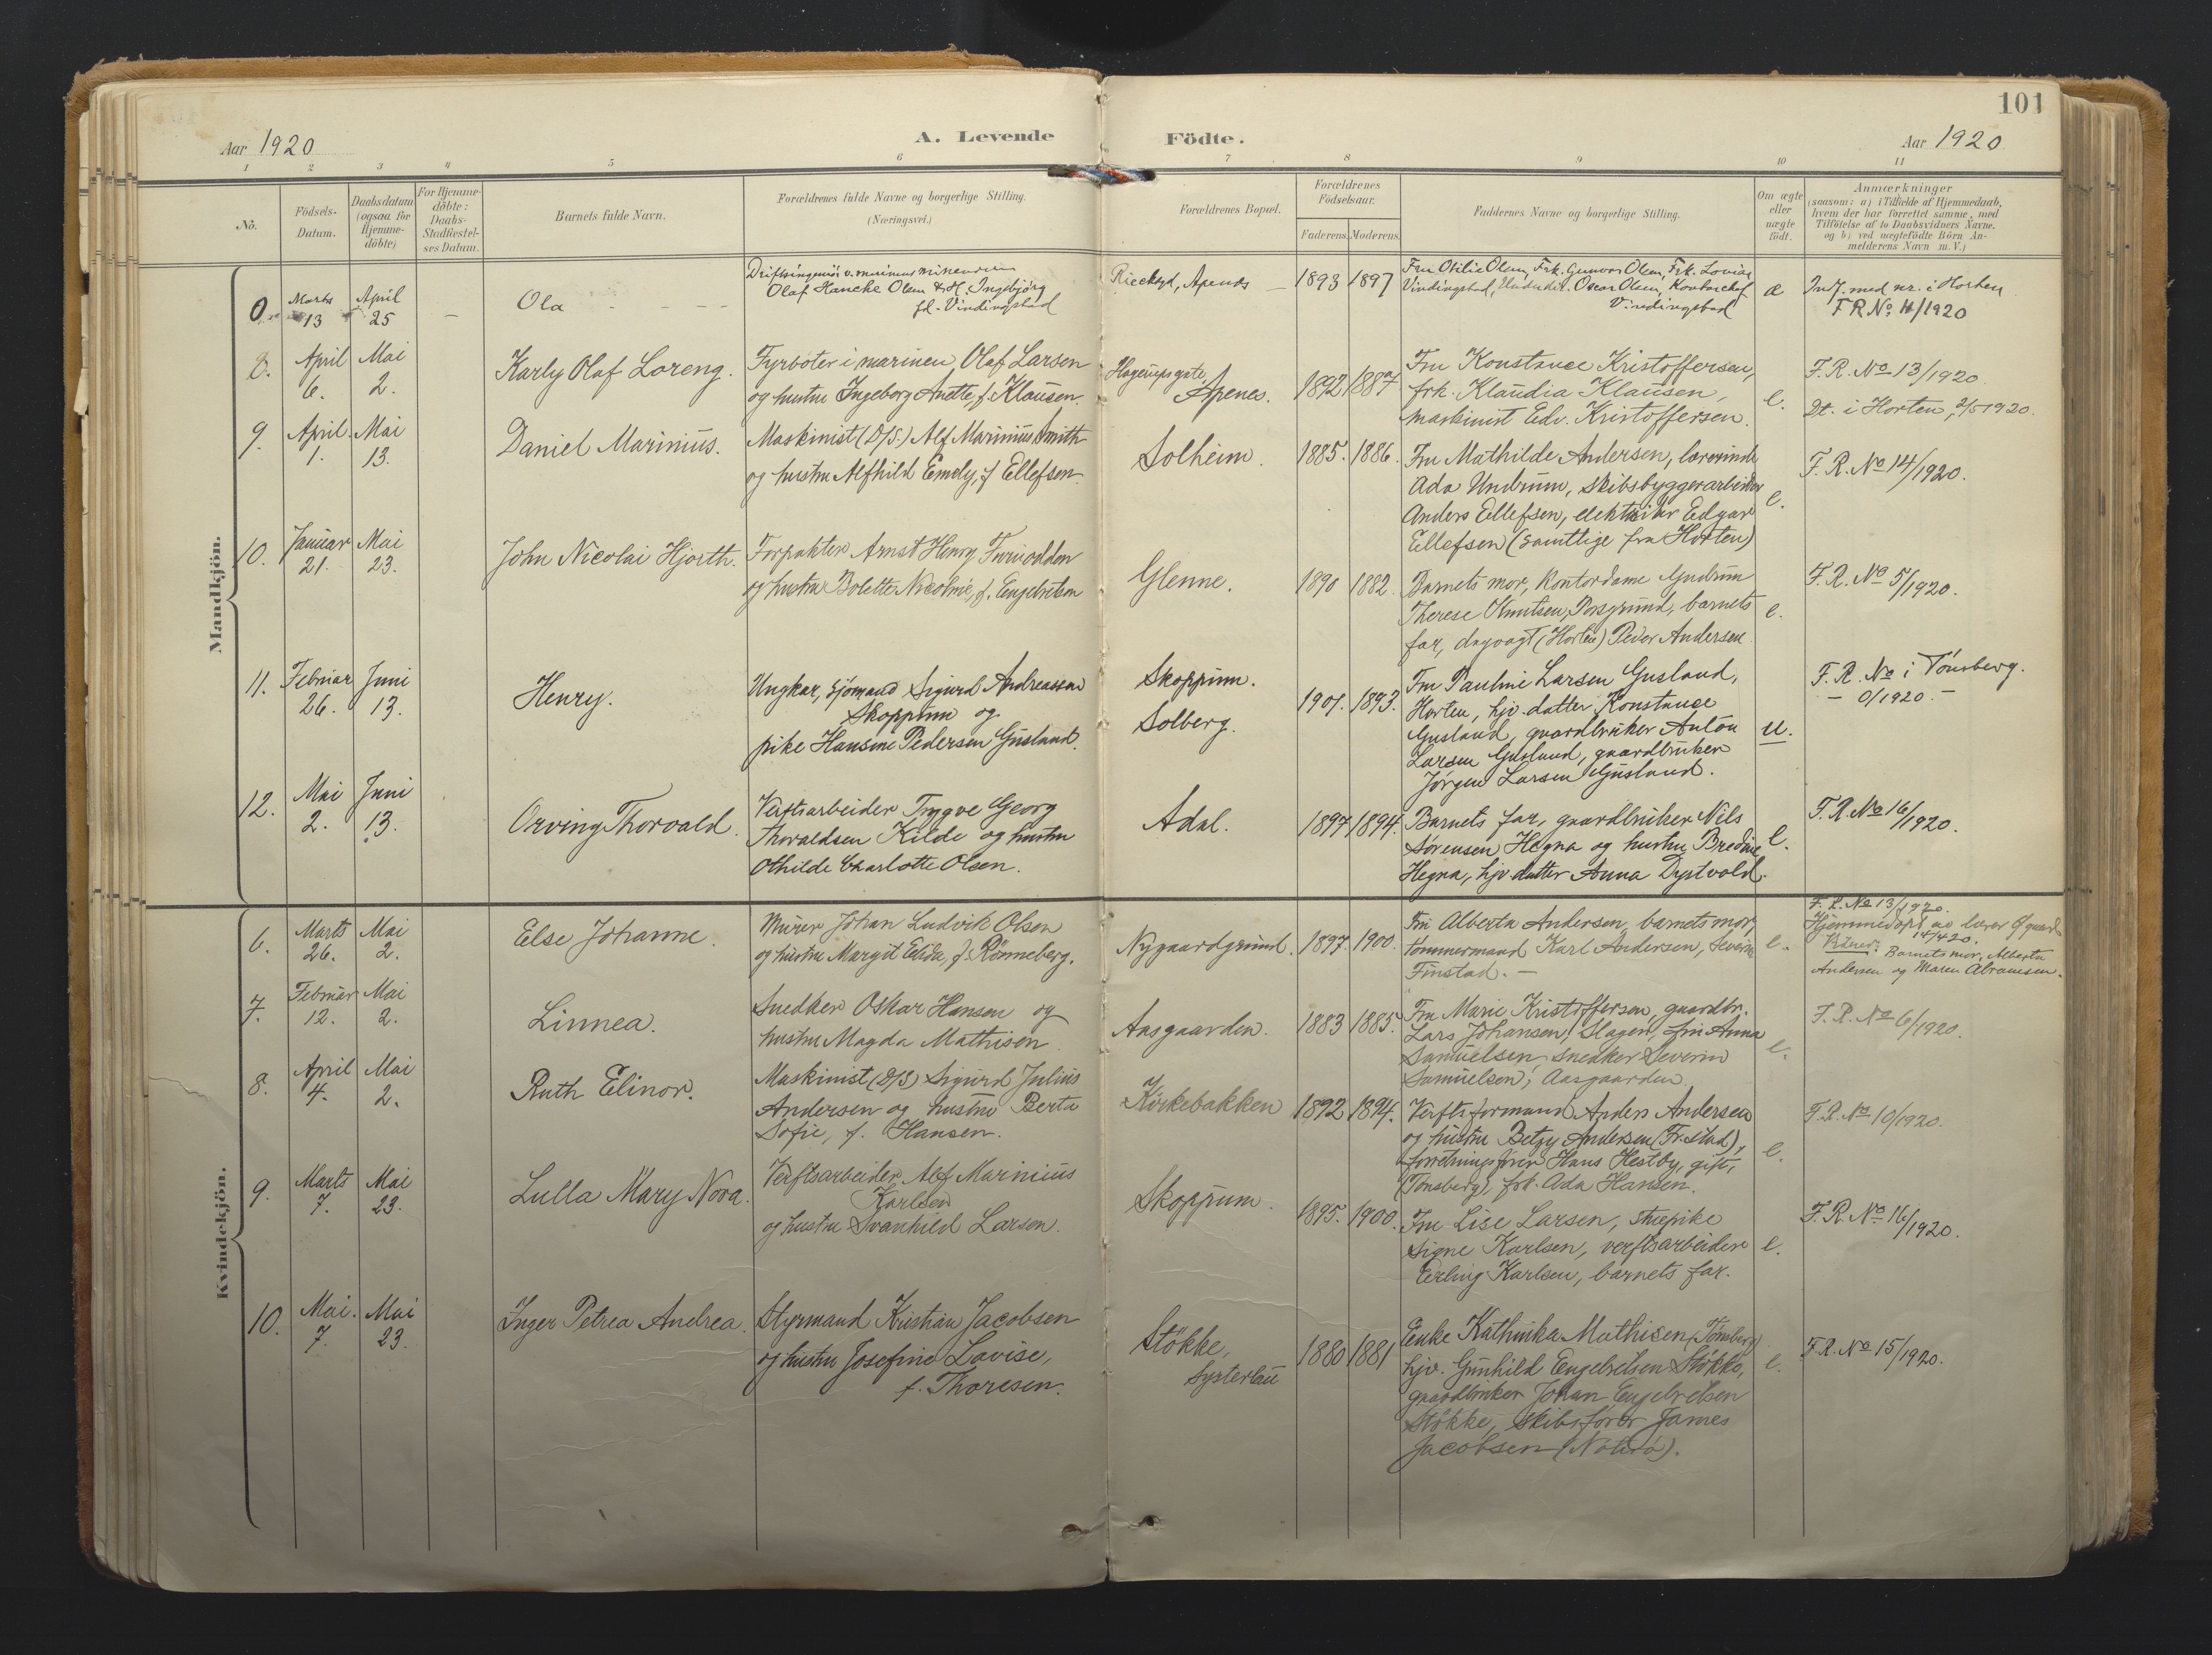 101
Aar 1920
A. Levende Födte.
Aar 1920
1 2 3 4 5 6 7 8 9 10 11
No.
Födsels-
Datum.
Daabsdatum
(ogsaa for
Hjemme-
döbte)
For Hjemme-
döbte:
Daabs-
Stadfæstel-
ses Datum.
Barnets fulde Navn.
Forældrenes fulde Navne og borgerlige Stilling.
(Næringsvei.)
Forældrenes Bopæl.
Forældrenes
Födselsaar.
Faderens. Moderens.
Faddernes Navne og borgerlige Stilling.
Om ægte
eller
uægte
födt.
Anmærkninger
(saasom: a) i Tilfælde af Hjemmedaab,
hvem der har forrettet samme, med
Tilföielse af to Daabsvidners Navne.
og b) ved uægtefödte Börn An-
melderens Navn m. V.)
Mandkjön.
0. Marts 13 April 25 — Ola
Driftsingeniör v. marinens minevæsen
Olaf Hancke Olsen & H. Ingebjörg
fd. Vindingstad
Apenes
1893 1897
Fru Otilie Olsen, Frk. Gunvor Olsen, Frk. Lovise
Vindingstad, Oscar Olsen, Kontorchef
Vindingstad
æ
Indf. med nr. i Horten
F R No 11/1920
8. April 6. Mai 2.
Karly Olaf Loreng.
Fyrböter i marinen, Olaf Larsen
og hustru Ingeborg Anette, f. Klausen.
Hagerupsgate,
Apenes.
1892 1887
Fru Konstance Kristoffersen,
frk. Klaudia Klausen,
maskinist Edv. Kristoffersen.
e.
F. R. No 13/1920.
Dt. i Horten, 2/5 1920.
9. April 1. Mai 13.
Daniel Marinius.
Maskinist (D/S.) Alf Marinius Smith
og hustru Alfhild Emely, f. Ellefsen.
Solheim.
1885. 1886.
Fru Mathilde Andersen, lærerinde
Ada Undrum, skibsbyggerarbeider
Anders Ellefsen, elektriker Edgar
Ellefsen (samtlige fra Horten)
e.
F. R. No 14/1920.
10. Januar 21. Mai 23.
John Nicolai Hjorth.
Forpakter Arnst Henry Furuodden
og hustru Bolette Nicoline, f. Engebretsen
Glenne.
1890 1882.
Barnets mor, kontordame Gudrun
Therese Knutsen, Porsgrund, barnets
far, dagvagt (Horten) Peder Andersen.
e.
F. R. No 5/1920.
11. Februar 26. Juni 13.
Henry.
Ungkar, sjömand Sigurd Andreassen
Skoppum og
pike Hansine Pedersen Gusland.
Skoppum.
Solberg.
1901. 1893.
Fru Pauline Larsen Gusland,
Horten, hjv. datter Konstance
Gusland, gaardbruker Anton
Larsen Gusland, gaardbruker
Jörgen Larsen Gusland.
u.
F. R. No i Tönsberg.
— 0/1920. —
12. Mai 2. Juni 13.
Orving Thorvald.
Verftsarbeider Tryggve Georg
Thoraldsen Kilde og hustru
Othilde Charlotte Olsen.
Adal.
1897 1894.
Barnets far, gaardbruker Nils
Sörensen Hegna og hustru Bredine
Hegna, hjv. datter Anna Dystvold.
e.
F. R. No 16/1920.
Kvindekjön.
6. Marts 26. Mai 2.
Else Johanne.
Murer Johan Ludvik Olsen
og hustru Margit Elida, f. Rönneberg.
Nygaardgrund.
1897. 1900.
Fru Alberta Andersen, barnets mor,
tömmermand Karl Andersen, Severin
Finstad. —
e.
F. R. No 13/1920.
Hjemmedöpt av lærer
14/4 20.
Barnets mor, Alberta
Andersen og Maren Abramsen.
7. Februar 12. Mai 2.
Linnea.
Snedker Oskar Hansen og
hustru Magda Mathisen
Aasgaarden.
1883 1885.
Fru Marie Kristoffersen, gaardbr.
Lars Johansen, Slagen, fru Anna
Samuelsen, snedker Severin
Samuelsen, Aasgaarden
e.
F. R. No 6/1920.
8. April 4. Mai 2.
Ruth Elinor.
Maskinist (D/S) Sigurd Julius
Andersen og hustru Berta
Sofie, f. Hansen.
Kirkebakken
1892 1894.
Verftsformand Anders Andersen
og hustru Betzy Andersen (Fr.stad),
forretningsförer Hans Hestby, gift,
(Tönsberg), frk. Ada Hansen.
e.
F. R. No 10/1920.
9. Marts 7. Mai 23.
Lulla Mary Nora.
Verftsarbeider Alf Marinius
Karlsen
og hustru Svanhild Larsen.
Skoppum.
1895. 1900.
Fru Lise Larsen, stuepike
Signe Karlsen, verftsarbeider
Erling Karlsen, barnets far.
e.
F. R. No 16/1920.
10. Mai. 7. Mai 23.
Inger Petrea Andrea.
Styrmand Kristian Jacobsen
og hustru Josefine Lovise,
f. Thoresen.
Stökke,
1880 1881
Enke Kathinka Mathisen (Tönsberg)
hjv. Gunhild Engebretsen Stökke,
gaardbruker Johan Engebretsen
Stökke, skibsförer James
Jacobsen (Nöterö).
e.
F. R. No 15/1920.